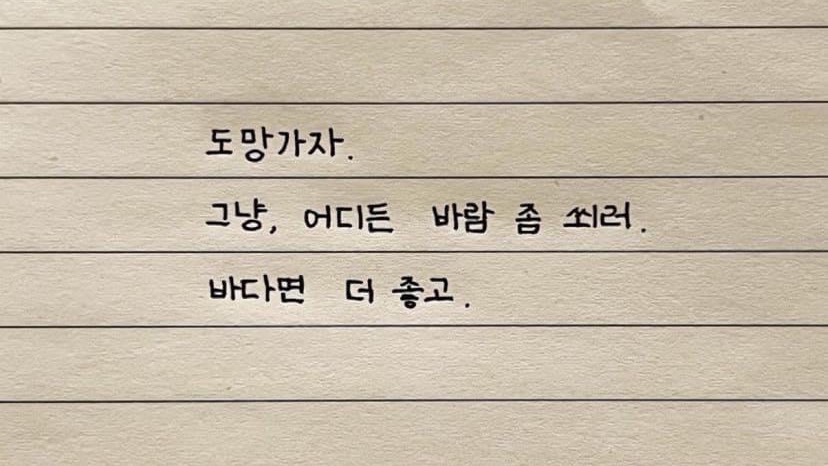 도망가자.
그냥, 어디든 바람 좀 쐬러.
바다면 더 좋고.